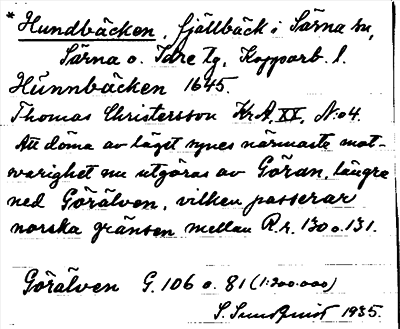 * Hundbäcken, fjällbäck i Särna sn,
Särna o. Idre tg, Kopparb. l.
Hünnbäcken 1645.
Thomas Christersson Kr.A, XX, N:o 4.
Att döma av läget synes närmaste mot-
svarighet nu utgöras av Göran, längre
ned Görälven, vilken passerar
norska gränsen mellan R.r. 130 o. 131.
Görälven G. 106 o. 81 (1:200.000)
S. Sundqvist 1935.